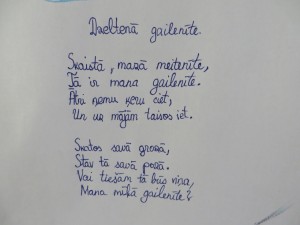 Dzeltenā gailenīte.
Skaistā, mazā meitenīte,
Tā ir mana gailenīte.
Ātri ņemu ķeru ciet,
Un uz mājām taisos iet.
Skatos savā grozā,
Stāv tā savā pozā.
Vai tiešām tā būs viņa,
Mana mīļā gailenīte?